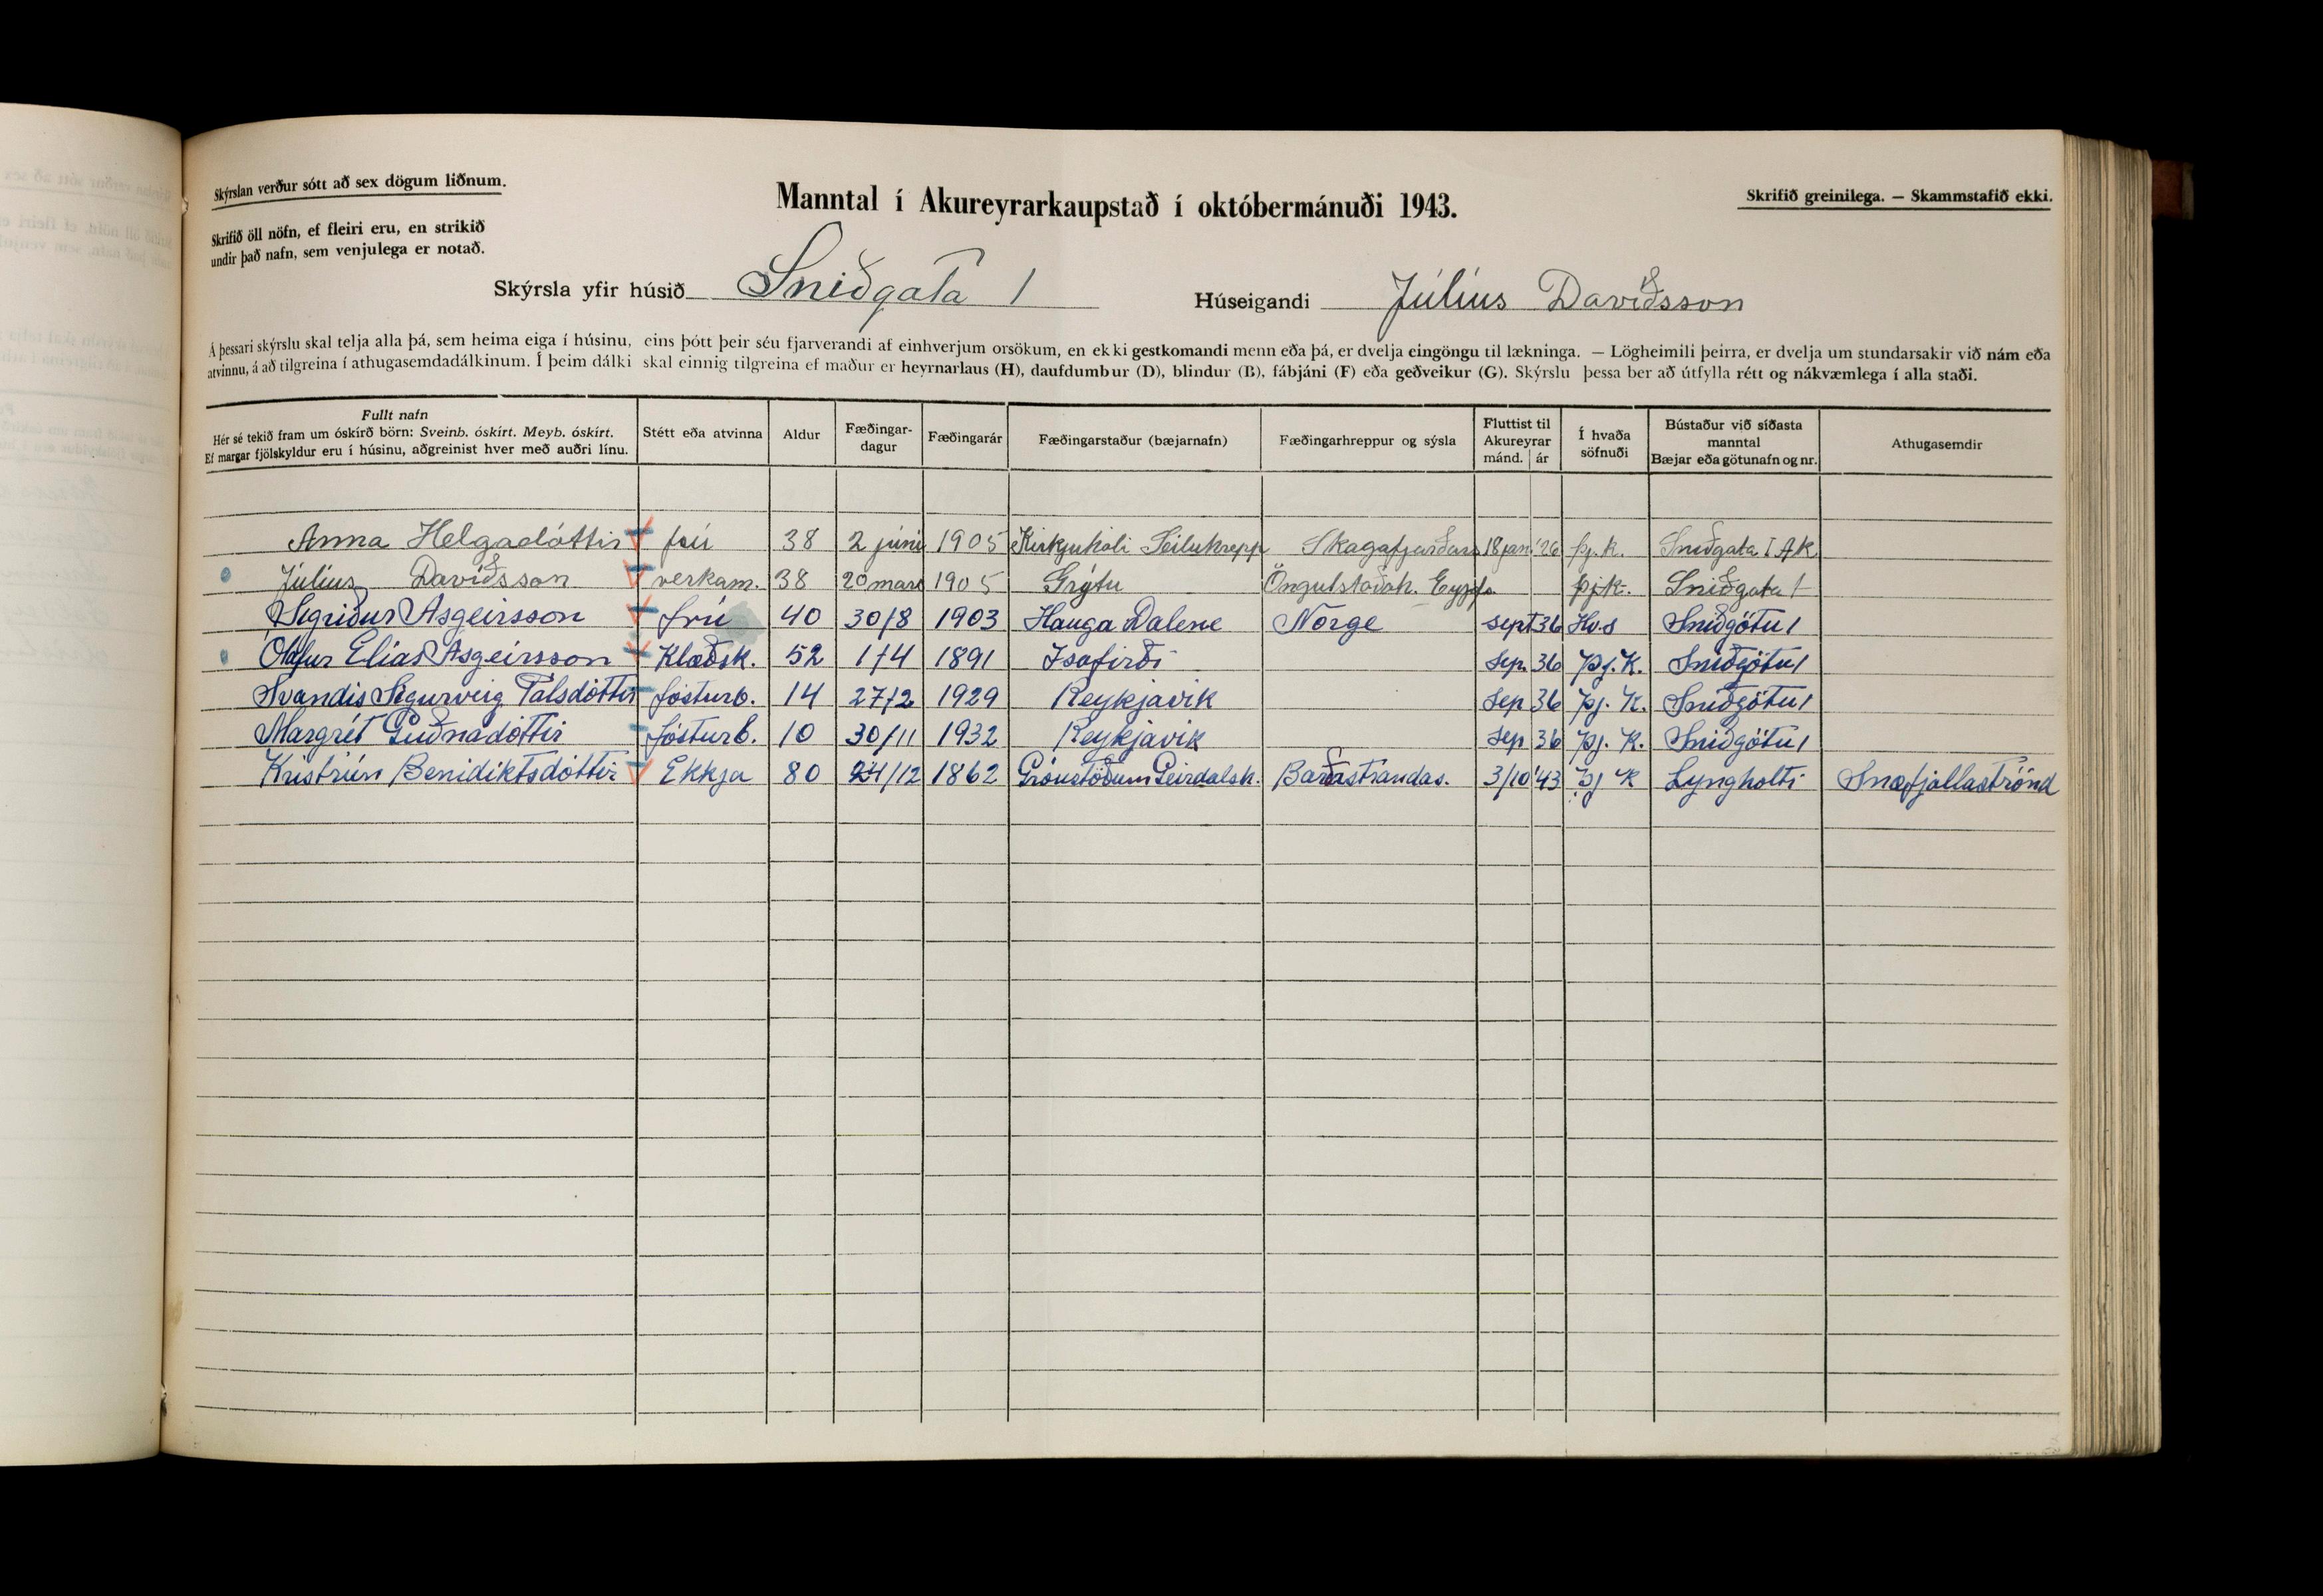 Skýrslan verður sótt að sex dögum liðnum.
Skrifið öll nöfn, ef fleiri eru, en strikið
undir það nafn, sem venjulega er notað.
Manntal í Akureyrarkaupstað í októbermánuði 1943.
Skrifið greinilega. — Skammstafið ekki.
Skýrsla yfir húsið Sniðgata 1 Húseigandi Júlíus Davíðsson
Á þessari skýrslu skal telja alla þá, sem heima eiga í húsinu, eins þótt þeir séu fjarverandi af einhverjum orsökum, en ekki gestkomandi menn eða þá, er dvelja eingöngu til lækninga. — Lögheimili þeirra, er dvelja um stundarsakir við nám eða
atvinnu, á að tilgreina í athugasemdadálkinum. Í þeim dálki skal einnig tilgreina ef maður er heyrnarlaus (H), daufdumbur (D), blindur (B), fábjáni (F) eða geðveikur (G). Skýrslu þessa ber að útfylla rétt og nákvæmlega í alla staði.
Fullt nafn
Hér sé tekið fram um óskírð börn: Sveinb. óskírt. Meyb. óskírt.
Ef margar fjölskyldur eru í húsinu, aðgreinist hver með auðri línu.
Stétt eða atvinna
Aldur
Fæðingar-
dagur
Fæðingarár
Fæðingarstaður (bæjarnafn)
Fæðingarhreppur og sýsla
Fluttist til
Akureyrar
mánd. ár
Í hvaða
söfnuði
Bústaður við síðasta
manntal
Bæjar eða götunafn og nr.
Athugasemdir
Anna Helgadóttir frú 38 2 júní 1905 Kirkjuhóli Seiluhrepp Skagafjarðars 18 jan '26 þj.k. Sniðgata 1 Ak
Júlíus Davíðsson verkam. 38 20 mars 1905 Grýtu Öngulstaðah. Eyjafs. þjk. Sniðgata 1
Sigriður Asgeirsson frú 40 30/8 1903 Hauga Dalene Norge sept 36 Hv.s Sniðgötu 1
Ólafur Elías Asgeirsson Klæðsk. 52 1/4 1891 Isafirði Sep. 36 Þj.K. Sniðgötu 1
Svandis Sigurveig Pálsdóttir fósturb. 14 27/2 1929 Reykjavik Sep 36 Þj. K. Sniðgötu 1
Margrét Guðnadóttir fósturb. 10 30/11 1932 Reykjavik Sep 36 Þj. K. Sniðgötu 1
Kristrún Benidiktsdóttir Ekkja 80 24/12 1862 Gróustöðum Geirdalsh. Barðastrandas. 3/10 '43 Þj K Lyngholti Snæfjallaströnd